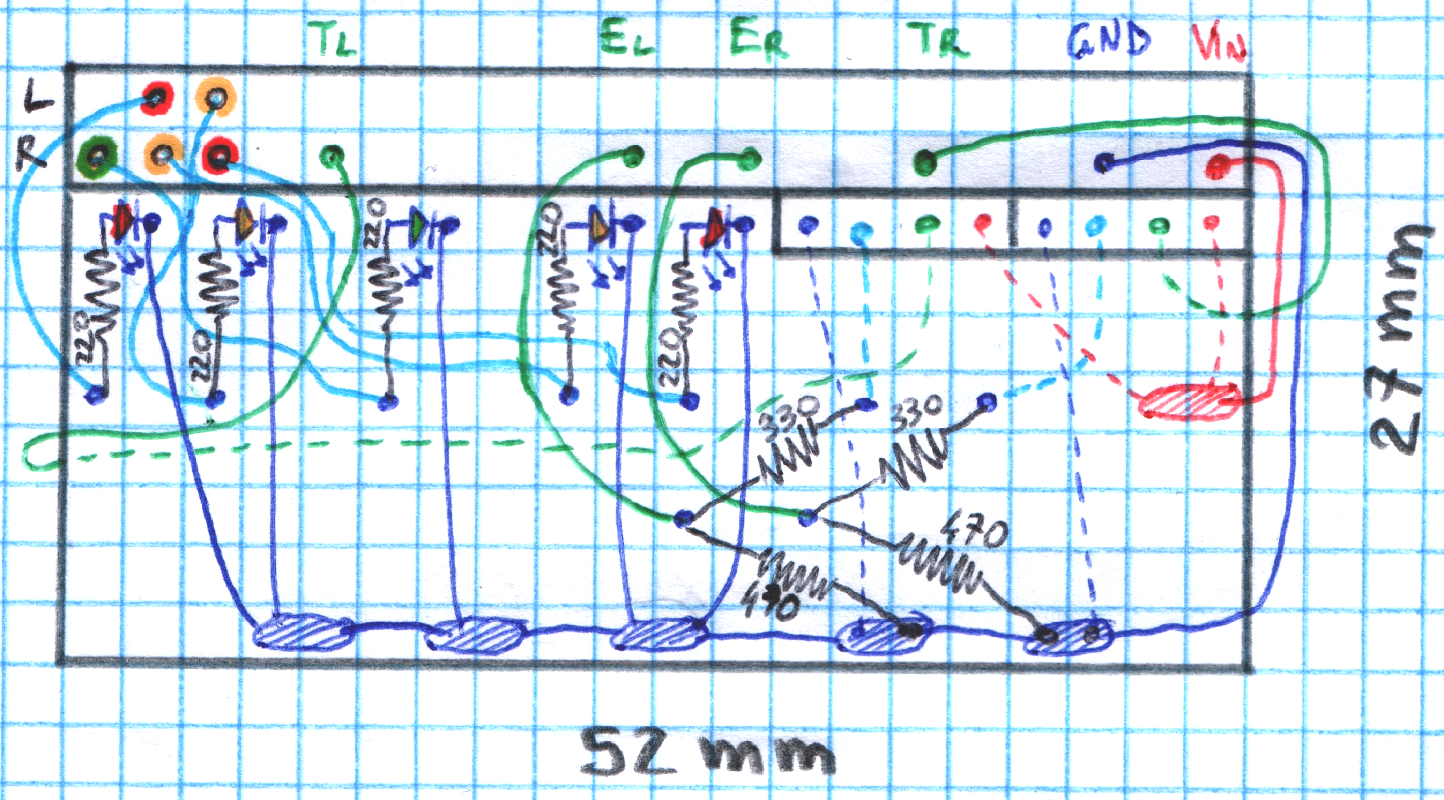 TL EL ER TR GND VIN
L
R
220 220 220 220 220
330 330
470
470
27 mm
52 mm